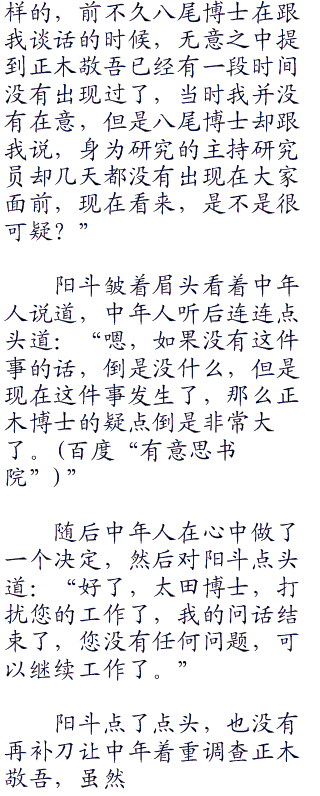 样的，前不久八尾博士在跟
我谈话的时候，无意之中提
到正木敬吾已经有一段时间
没有出现过了，当时我并没
有在意，但是八尾博士却跟
我说，身为研究的主持研究
员却几天都没有出现在大家
面前，现在看来，是不是很
可疑？”
阳斗皱着眉头看着中年
人说道，中年人听后连连点
头道：“嗯，如果没有这件
事的话，倒是没什么，但是
现在这件事发生了，那么正
木博士的疑点倒是非常大
了。(百度“有意思书
院”)”
随后中年人在心中做了
一个决定，然后对阳斗点头
道：“好了，太田博士，打
扰您的工作了，我的问话结
束了，您没有任何问题，可
以继续工作了。”
阳斗点了点头，也没有
再补刀让中年着重调查正木
敬吾，虽然